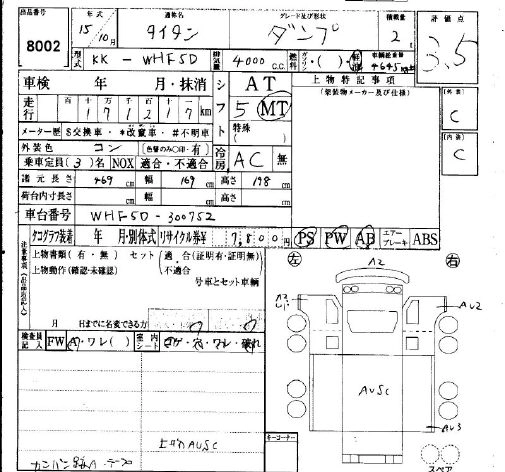 出品番号 8002
年式 15年 10月
通称名 タイタン
グレード及び形状 ダンプ
積載量 2t
評価点 3.5
型式 KK - WHF5D
排気量 4000 C.C.
燃料 ガソリン・( )・軽油
車輌総重量 4645
車検 年 月・抹消
シフト AT
5 MT
特殊( )
上物特記事項
(架装物メーカー及び仕様)
外装 C
内装 C
走行 十万千百十一
171217km
メーター歴 $交換車・*改竄車・#不明車
外装色 コン (色替のみ○印・有)
冷房 AC 無
乗車定員(3)名 NOX 適合・不適合
諸元長さ 469cm 幅 169cm 高さ 198cm
荷台内寸長さ cm 幅 cm 高さ cm
車台番号 WHF5D-300752
タコグラフ装着 年 月・別体式 リサイクル券¥ 7,800円
PS PW AB エアーブレーキ ABS
注意事項(出品店記入)
上物書類(有・無) セット(適・合(証明有・証明無)
上物動作(確認・未確認) 不適合
号車とセット車輌
月 日までに名変できる方
検査員記入 FW ・ワレ( ) 室内シート コゲ・穴・ワレ・破れ
左 右
A2
AU2
AUSC
AU3
上ダAUSC
キーコーナー
スペア